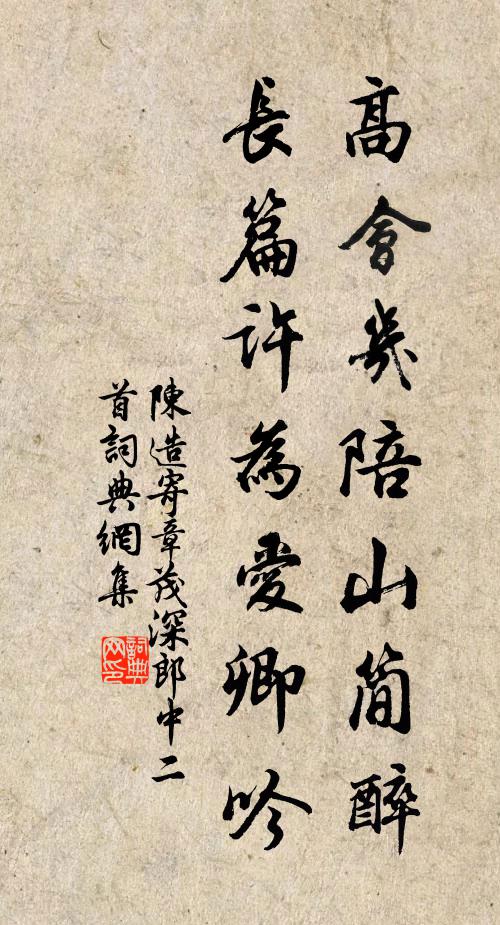 高會幾陪山簡醉
長篇許為愛卿吟
陳造寄章茂深郎中二
首詞典網集
詞典網印